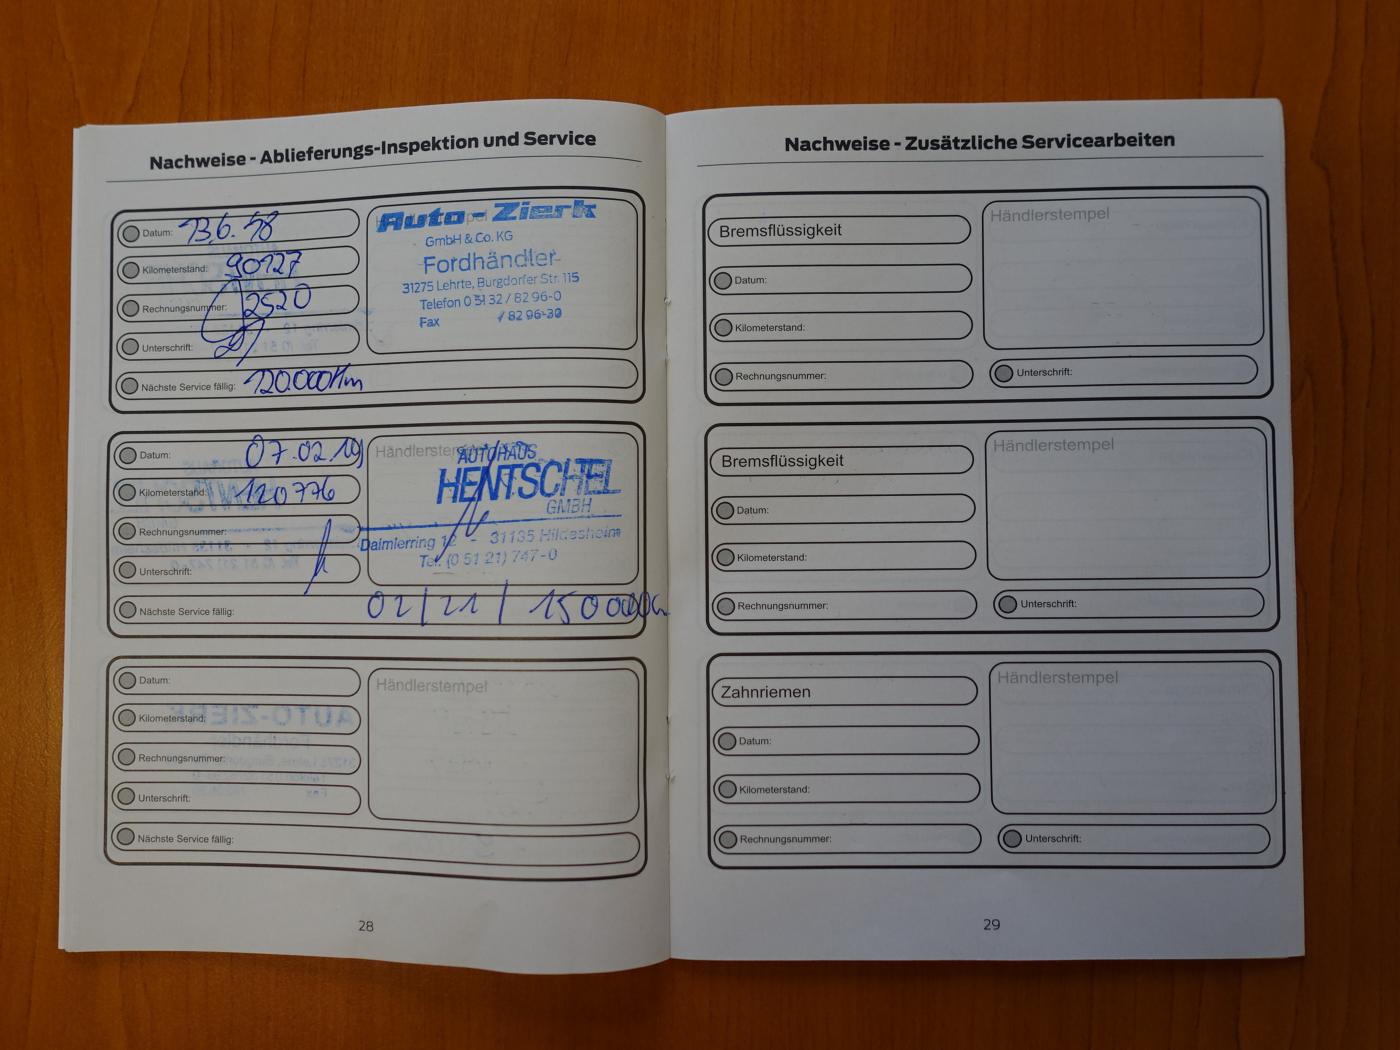 Nachweise - Ablieferungs-Inspektion und Service
Datum: 13.6.18
Kilometerstand: 90127
Rechnungsnummer: 2520
Unterschrift:
Nächste Service fällig: 120.000Km
Auto-Zierk
GmbH & Co. KG
Fordhändler
31275 Lehrte, Burgdorfer Str. 115
Telefon 0 51 32 / 82 96-0
Fax / 82 96-30
Datum: 07.02.19
Kilometerstand: 120776
Rechnungsnummer:
Unterschrift:
Nächste Service fällig: 02/21 / 150000
Händlerstempel
AUTOHAUS
HENTSCHEL
GMBH
Daimlerring 12 - 31135 Hildesheim
Tel. (0 51 21) 747-0
Datum:
Kilometerstand:
Rechnungsnummer:
Unterschrift:
Nächste Service fällig:
Händlerstempel
28
Nachweise - Zusätzliche Servicearbeiten
Bremsflüssigkeit
Datum:
Kilometerstand:
Rechnungsnummer:
Händlerstempel
Unterschrift:
Bremsflüssigkeit
Datum:
Kilometerstand:
Rechnungsnummer:
Händlerstempel
Unterschrift:
Zahnriemen
Datum:
Kilometerstand:
Rechnungsnummer:
Händlerstempel
Unterschrift:
29